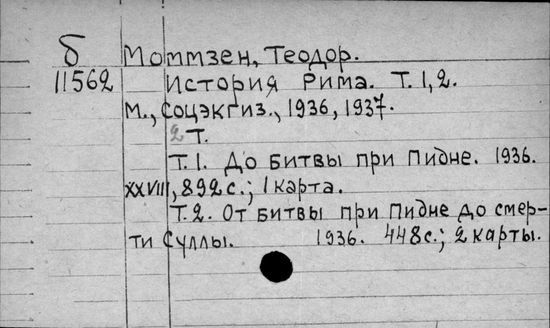 б Моммзен, Теодор.
11562 История Рима. Т. 1, 2.
М., Соцэкгиз., 1936, 1937.
2 Т.
Т. 1. До битвы при Пидне. 1936.
XXVIII, 892 с.; 1 карта.
Т. 2. От битвы при Пидне до смер-
ти Суллы. 1936. 448 с.; 2 карты.